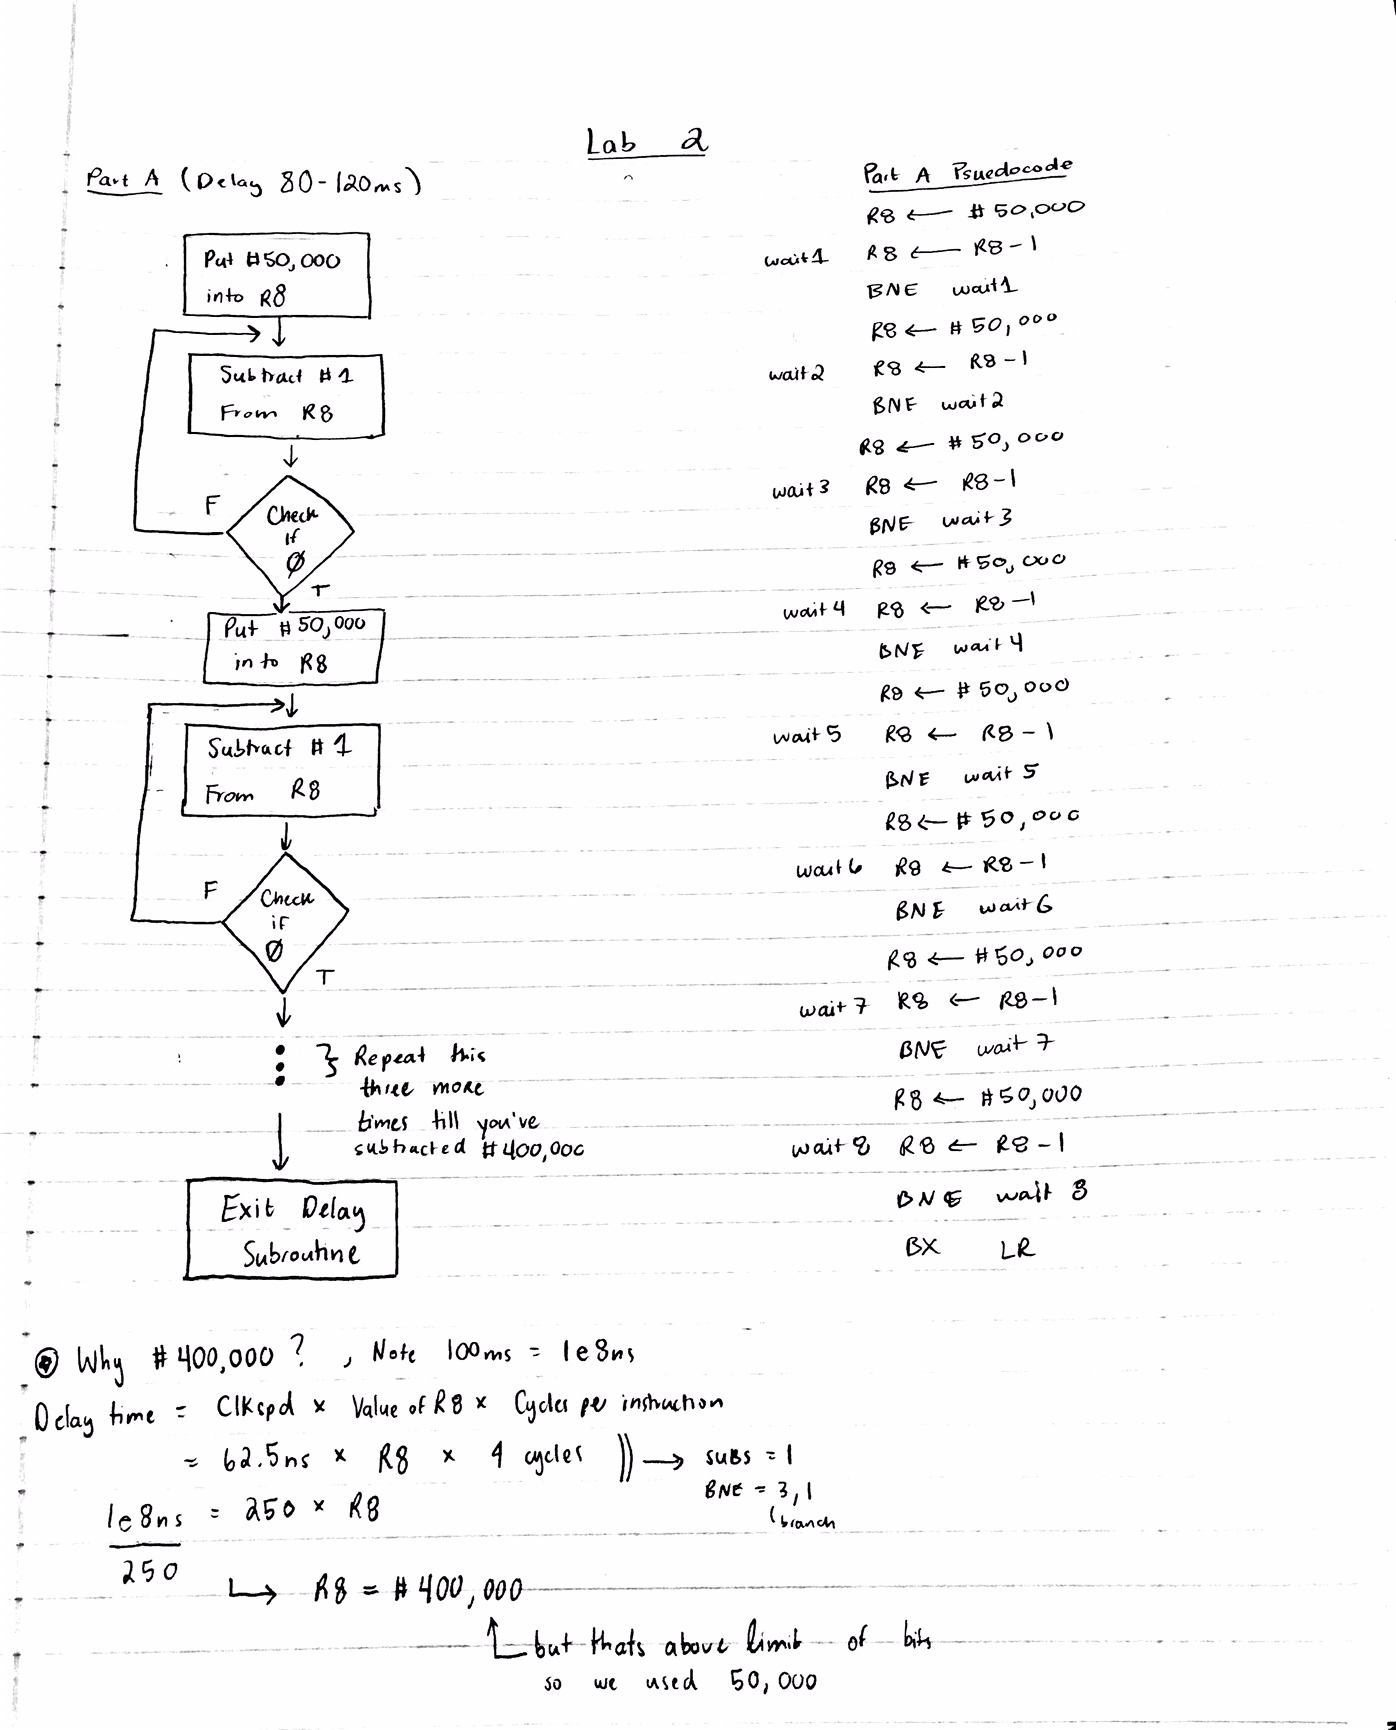 Lab 2
Part A (Delay 80-120ms)
Put #50,000
into R8
Subtract #1
From R8
F
Check
if
Ø
T
Put #50,000
into R8
Subtract #1
From R8
F
Check
if
Ø
T
} Repeat this
three more
times till you've
subtracted #400,000
Exit Delay
Subroutine
Part A Psuedocode
R8 ← #50,000
wait1 R8 ← R8-1
BNE wait1
R8 ← #50,000
wait2 R8 ← R8-1
BNE wait2
R8 ← #50,000
wait3 R8 ← R8-1
BNE wait3
R8 ← #50,000
wait4 R8 ← R8-1
BNE wait4
R8 ← #50,000
wait5 R8 ← R8-1
BNE wait5
R8 ← #50,000
wait6 R8 ← R8-1
BNE wait6
R8 ← #50,000
wait7 R8 ← R8-1
BNE wait7
R8 ← #50,000
wait8 R8 ← R8-1
BNE wait8
BX LR
Why #400,000? , Note 100ms = 1e8ns
Delay time = Clkspd × Value of R8 × Cycles per instruction
= 62.5ns × R8 × 4 cycles )) → SUBS = 1
BNE = 3,1
(branch
1e8ns = 250 × R8
250
↳ R8 = #400,000
but thats above limit of bits
so we used 50,000